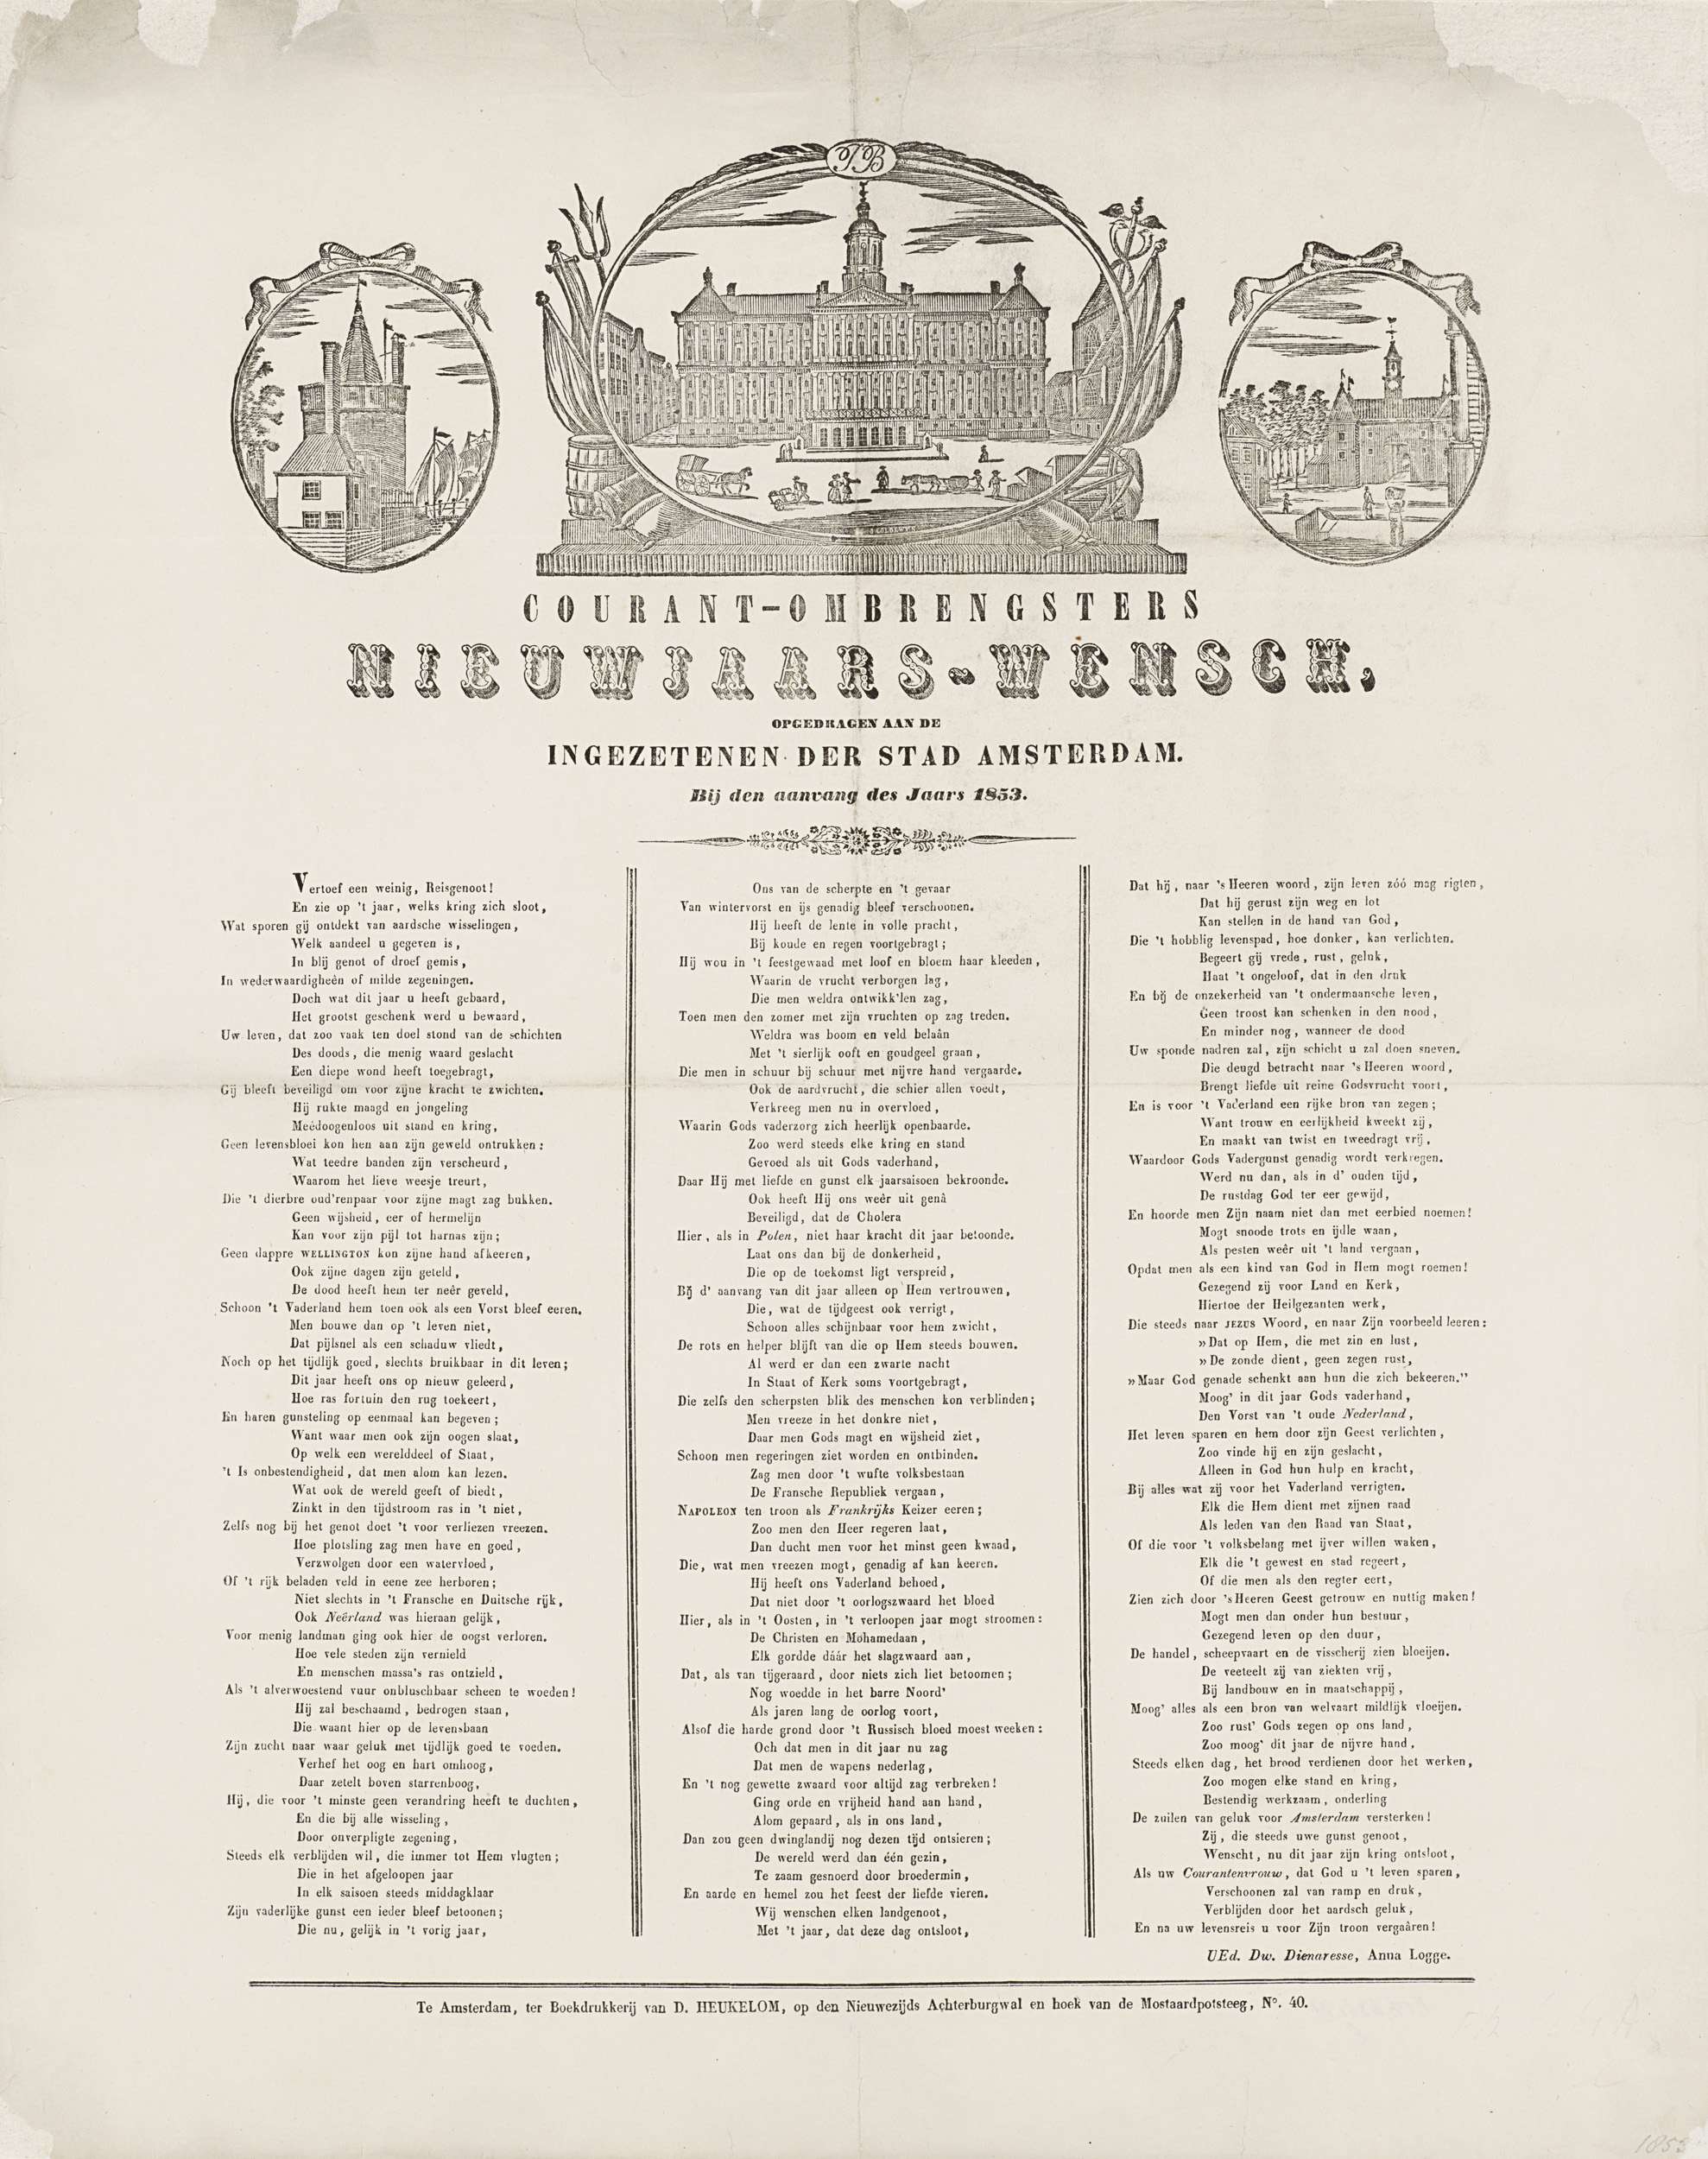 JB
COURANT-OMBRENGSTERS
NIEUWJAARS-WENSCH,
OPGEDRAGEN AAN DE
INGEZETENEN DER STAD AMSTERDAM.
Bij den aanvang des Jaars 1853.
Vertoef een weinig, Reisgenoot!
En zie op 't jaar, welks kring zich sloot,
Wat sporen gij ontdekt van aardsche wisselingen,
Welk aandeel u gegeven is,
In blij genot of droef gemis,
In wederwaardigheên of milde zegeningen.
Doch wat dit jaar u heeft gebaard,
Het grootst geschenk werd u bewaard,
Uw leven, dat zoo vaak ten doel stond van de schichten
Des doods, die menig waard geslacht
Een diepe wond heeft toegebragt,
Gij bleeft beveiligd om voor zijne kracht te zwichten.
Hij rukte maagd en jongeling
Meêdoogenloos uit stand en kring,
Geen levensbloei kon hen aan zijn geweld ontrukken:
Wat teedre banden zijn verscheurd,
Waarom het lieve weesje treurt,
Die 't dierbre oud'renpaar voor zijne magt zag bukken.
Geen wijsheid, eer of hermelijn
Kan voor zijn pijl tot harnas zijn;
Geen dappre WELLINGTON kon zijne hand afkeeren,
Ook zijne dagen zijn geteld,
De dood heeft hem ter neêr geveld,
Schoon 't Vaderland hem toen ook als een Vorst bleef eeren.
Men bouwe dan op 't leven niet,
Dat pijlsnel als een schaduw vliedt,
Noch op het tijdlijk goed, slechts bruikbaar in dit leven;
Dit jaar heeft ons op nieuw geleerd,
Hoe ras fortuin den rug toekeert,
En haren gunsteling op eenmaal kan begeven;
Want waar men ook zijn oogen slaat,
Op welk een werelddeel of Staat,
't Is onbestendigheid, dat men alom kan lezen.
Wat ook de wereld geeft of biedt,
Zinkt in den tijdstroom ras in 't niet,
Zelfs nog bij het genot doet 't voor verliezen vreezen.
Hoe plotsling zag men have en goed,
Verzwolgen door een watervloed,
Of 't rijk beladen veld in eene zee herboren;
Niet slechts in 't Fransche en Duitsche rijk,
Ook Neêrland was hieraan gelijk,
Voor menig landman ging ook hier de oogst verloren.
Hoe vele steden zijn vernield
En menschen massa's ras ontzield,
Als 't alverwoestend vuur onbluschbaar scheen te woeden!
Hij zal beschaamd, bedrogen staan,
Die waant hier op de levensbaan
Zijn zucht naar waar geluk met tijdlijk goed te voeden.
Verhef het oog en hart omhoog,
Daar zetelt boven starrenboog,
Hij, die voor 't minste geen verandring heeft te duchten,
En die bij alle wisseling,
Door onverpligte zegening,
Steeds elk verblijden wil, die immer tot Hem vlugten;
Die in het afgeloopen jaar
In elk saisoen steeds middagklaar
Zijn vaderlijke gunst een ieder bleef betoonen;
Die nu, gelijk in 't vorig jaar,
Ons van de scherpte en 't gevaar
Van wintervorst en ijs genadig bleef verschoonen.
Hij heeft de lente in volle pracht,
Bij koude en regen voortgebragt;
Hij wou in 't feestgewaad met loof en bloem haar kleeden,
Waarin de vrucht verborgen lag,
Die men weldra ontwikk'len zag,
Toen men den zomer met zijn vruchten op zag treden.
Weldra was boom en veld belaân
Met 't sierlijk ooft en goudgeel graan,
Die men in schuur bij schuur met nijvre hand vergaarde.
Ook de aardvrucht, die schier allen voedt,
Verkreeg men nu in overvloed,
Waarin Gods vaderzorg zich heerlijk openbaarde.
Zoo werd steeds elke kring en stand
Gevoed als uit Gods vaderhand,
Daar Hij met liefde en gunst elk jaarsaisoen bekroonde.
Ook heeft Hij ons weêr uit genâ
Beveiligd, dat de Cholera
Hier, als in Polen, niet haar kracht dit jaar betoonde.
Laat ons dan bij de donkerheid,
Die op de toekomst ligt verspreid,
Bij d' aanvang van dit jaar alleen op Hem vertrouwen,
Die, wat de tijdgeest ook verrigt,
Schoon alles schijnbaar voor hem zwicht,
De rots en helper blijft van die op Hem steeds bouwen.
Al werd er dan een zwarte nacht
In Staat of Kerk soms voortgebragt,
Die zelfs den scherpsten blik des menschen kon verblinden;
Men vreeze in het donkre niet,
Daar men Gods magt en wijsheid ziet,
Schoon men regeringen ziet worden en ontbinden.
Zag men door 't wufte volksbestaan
De Fransche Republiek vergaan,
NAPOLEON ten troon als Frankrijks Keizer eeren;
Zoo men den Heer regeren laat,
Dan ducht men voor het minst geen kwaad,
Die, wat men vreezen mogt, genadig af kan keeren.
Hij heeft ons Vaderland behoed,
Dat niet door 't oorlogszwaard het bloed
Hier, als in 't Oosten, in 't verloopen jaar mogt stroomen:
De Christen en Mohamedaan,
Elk gordde dáár het slagzwaard aan,
Dat, als van tijgeraard, door niets zich liet betoomen;
Nog woedde in het barre Noord'
Als jaren lang de oorlog voort,
Alsof die harde grond door 't Russisch bloed moest weeken:
Och dat men in dit jaar nu zag
Dat men de wapens nederlag,
En 't nog gewette zwaard voor altijd zag verbreken!
Ging orde en vrijheid hand aan hand,
Alom gepaard, als in ons land,
Dan zou geen dwinglandij nog dezen tijd ontsieren;
De wereld werd dan één gezin,
Te zaam gesnoerd door broedermin,
En aarde en hemel zou het feest der liefde vieren.
Wij wenschen elken landgenoot,
Met 't jaar, dat deze dag ontsloot,
Dat hij, naar 's Heeren woord, zijn leven zóó mag rigten,
Dat hij gerust zijn weg en lot
Kan stellen in de hand van God,
Die 't hobblig levenspad, hoe donker, kan verlichten.
Begeert gij vrede, rust, geluk,
Haat 't ongeloof, dat in den druk
En bij de onzekerheid van 't ondermaansche leven,
Geen troost kan schenken in den nood,
En minder nog, wanneer de dood
Uw sponde nadren zal, zijn schicht u zal doen sneven.
Die deugd betracht naar 's Heeren woord,
Brengt liefde uit reine Godsvrucht voort,
En is voor 't Vaderland een rijke bron van zegen;
Want trouw en eerlijkheid kweekt zij,
En maakt van twist en tweedragt vrij,
Waardoor Gods Vadergunst genadig wordt verkregen.
Werd nu dan, als in d' ouden tijd,
De rustdag God ter eer gewijd,
En hoorde men Zijn naam niet dan met eerbied noemen!
Mogt snoode trots en ijdle waan,
Als pesten weêr uit 't land vergaan,
Opdat men als een kind van God in Hem mogt roemen!
Gezegend zij voor Land en Kerk,
Hiertoe der Heilgezanten werk,
Die steeds naar JEZUS Woord, en naar Zijn voorbeeld leeren:
»Dat op Hem, die met zin en lust,
»De zonde dient, geen zegen rust,
»Maar God genade schenkt aan hun die zich bekeeren."
Moog' in dit jaar Gods vaderhand,
Den Vorst van 't oude Nederland,
Het leven sparen en hem door zijn Geest verlichten,
Zoo vinde hij en zijn geslacht,
Alleen in God hun hulp en kracht,
Bij alles wat zij voor het Vaderland verrigten.
Elk die Hem dient met zijnen raad
Als leden van den Raad van Staat,
Of die voor 't volksbelang met ijver willen waken,
Elk die 't gewest en stad regeert,
Of die men als den regter eert,
Zien zich door 's Heeren Geest getrouw en nuttig maken!
Mogt men dan onder hun bestuur,
Gezegend leven op den duur,
De handel, scheepvaart en de visscherij zien bloeijen.
De veeteelt zij van ziekten vrij,
Bij landbouw en in maatschappij,
Moog' alles als een bron van welvaart mildlijk vloeijen.
Zoo rust' Gods zegen op ons land,
Zoo moog' dit jaar de nijvre hand,
Steeds elken dag, het brood verdienen door het werken,
Zoo mogen elke stand en kring,
Bestendig werkzaam, onderling
De zuilen van geluk voor Amsterdam versterken!
Zij, die steeds uwe gunst genoot,
Wenscht, nu dit jaar zijn kring ontsloot,
Als uw Courantenvrouw, dat God u 't leven sparen,
Verschoonen zal van ramp en druk,
Verblijden door het aardsch geluk,
En na uw levensreis u voor Zijn troon vergaâren!
UEd. Dw. Dienaresse, Anna Logge.
Te Amsterdam, ter Boekdrukkerij van D. HEUKELOM, op den Nieuwezijds Achterburgwal en hoek van de Mostaardpotsteeg, N°. 40.
1853